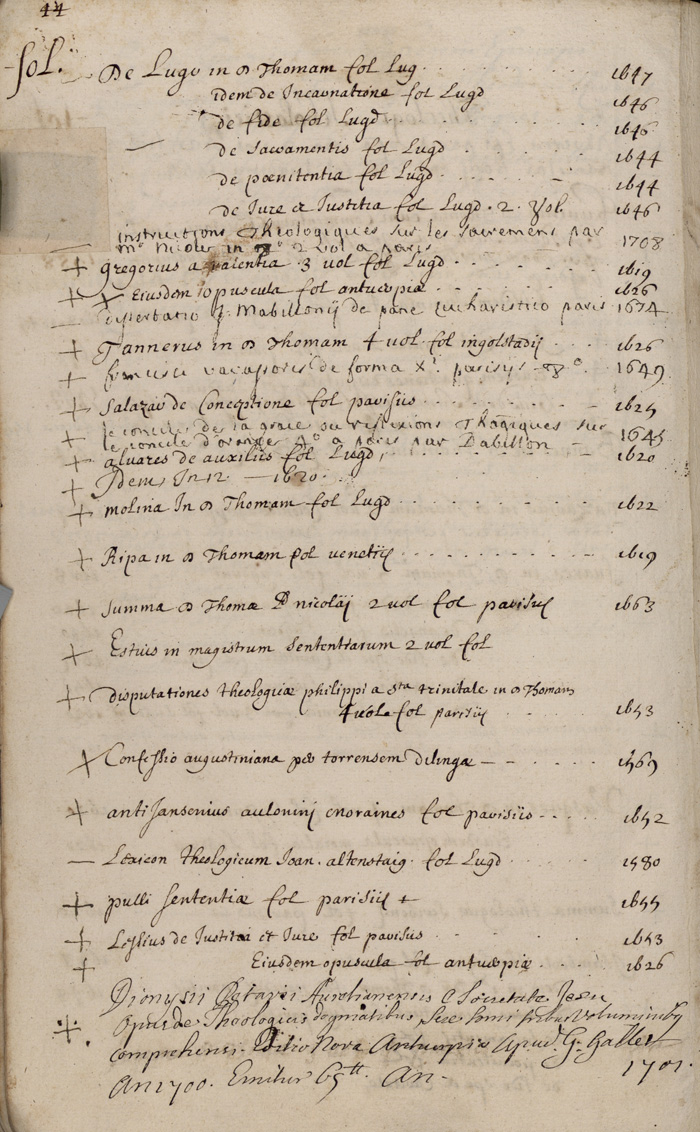 44
fol.
De Lugo in D Thomam fol Lug 1647
idem de Incarnatione fol Lugd 1646
de fide fol Lugd 1646
de Sacramentis fol Lugd 1644
de pœnitentia fol Lugd 1644
de Jure et Justitia fol Lugd. 2. Vol. 1646
instructions Theologiques sur les sacremens par
Mr Nicole in 2 vol a paris 1708
+ gregorius a valentia 3 vol fol Lugd 1619
+ Eiusdem opuscula fol antuerpiæ 1626
Dissertatio J. Mabillonij de pane Eucharistico paris 1674
+ Tannerus in D Thomam 4 vol fol ingolstadij 1626
+ francisci de forma Xi parisijs 8o 1649
+ Salazar de Conceptione fol parisiis 1625
+ le concile de la grace ou reflexions Theologiques sur
le concile d'orange 4o a paris par Dabillon 1645
+ alvares de auxiliis fol Lugd, 1620
+ Idem In 12 — 1620
+ molina In D Thomam fol Lugd 1622
+ Ripa in D Thomam fol venetiis 1619
+ Summa D Thomæ P nicolaij 2 vol fol parisiis 1663
+ Estius in magistrum Sententiarum 2 vol fol
+ disputationes theologicæ philippi a Sta trinitate in D Thomam
4 vol fol parisiis 1653
+ Confessio augustiniana per torrensem dilingæ — 1569
+ anti Jansenius fol parisiis 1652
— Lexicon theologicum Joan. altenstaig. fol Lugd 1580
+ pulli sententiæ fol parisiis + 1655
+ Lessius de Justitia et Jure fol parisiis 1653
+ Eiusdem opuscula fol antuerpiæ 1626
+ Dionysii Petavii Aurelianensis e Societate Jesu
Opus de Theologicis dogmatibus, Sex tomi tribus Voluminibus
comprehensi. Editio Nova Antuerpiæ apud G. Gallet
An 1700. Emitur 65 tt. An. 1701.